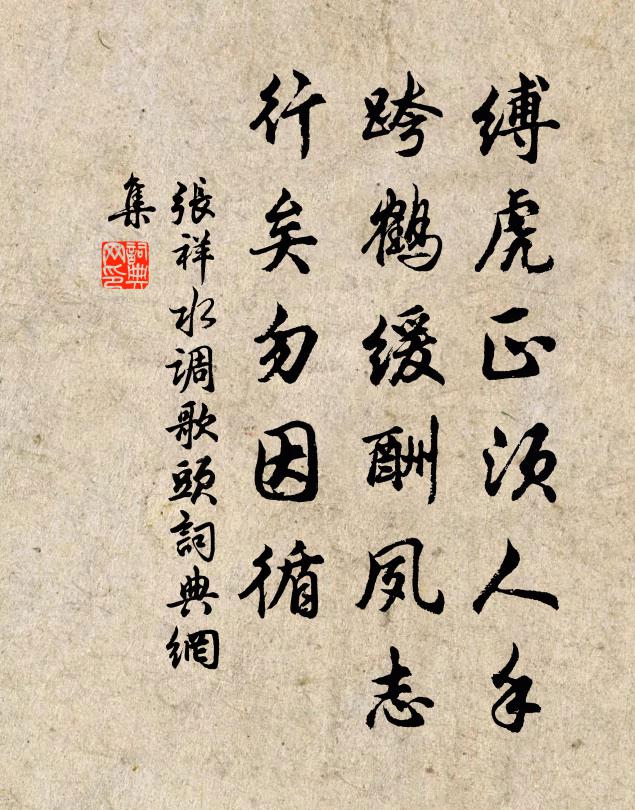 缚虎正须人手
跨鹤缓酬夙志
行矣勿因循
張祥水调歌頭詞典網
集
詞典网印